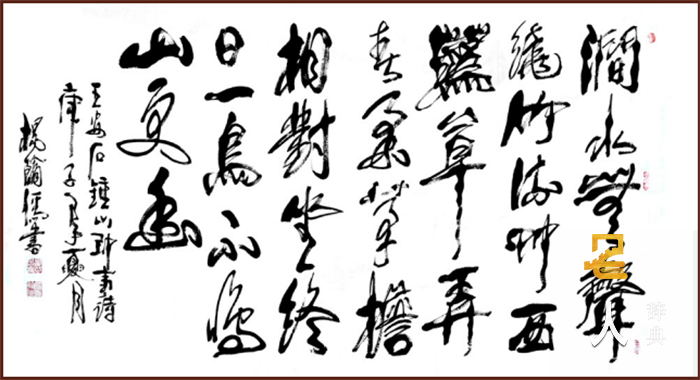 澗水無聲
繞竹流竹西
花草弄
春柔茅檐
相對坐終
日一鳥不鳴
山更幽
王安石鐘山即事詩
庚子年夏月
楊書
名人
辞典